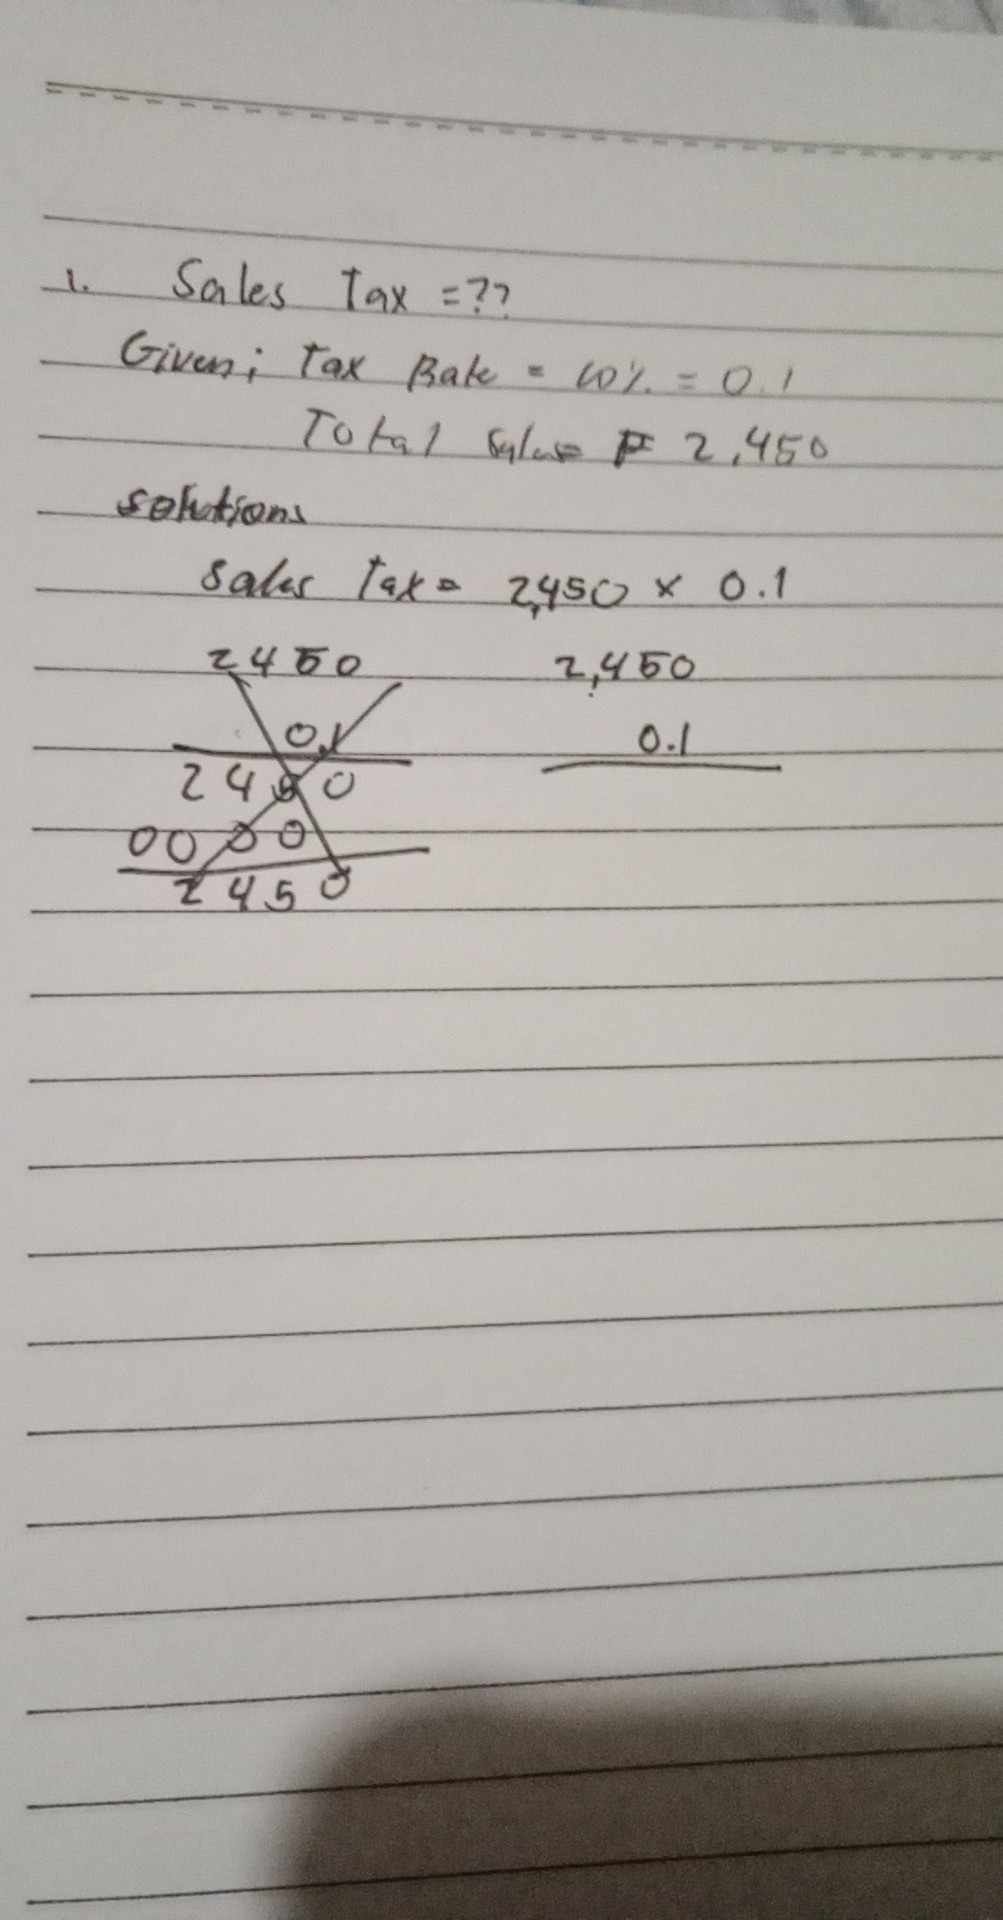 1. Sales Tax = ??
Given; Tax Rate = 10% = 0.1
Total Sales ₱ 2,450
solutions
Sales Tax = 2,450 × 0.1
2450
0.1
2450
0000
2450
2,450
0.1